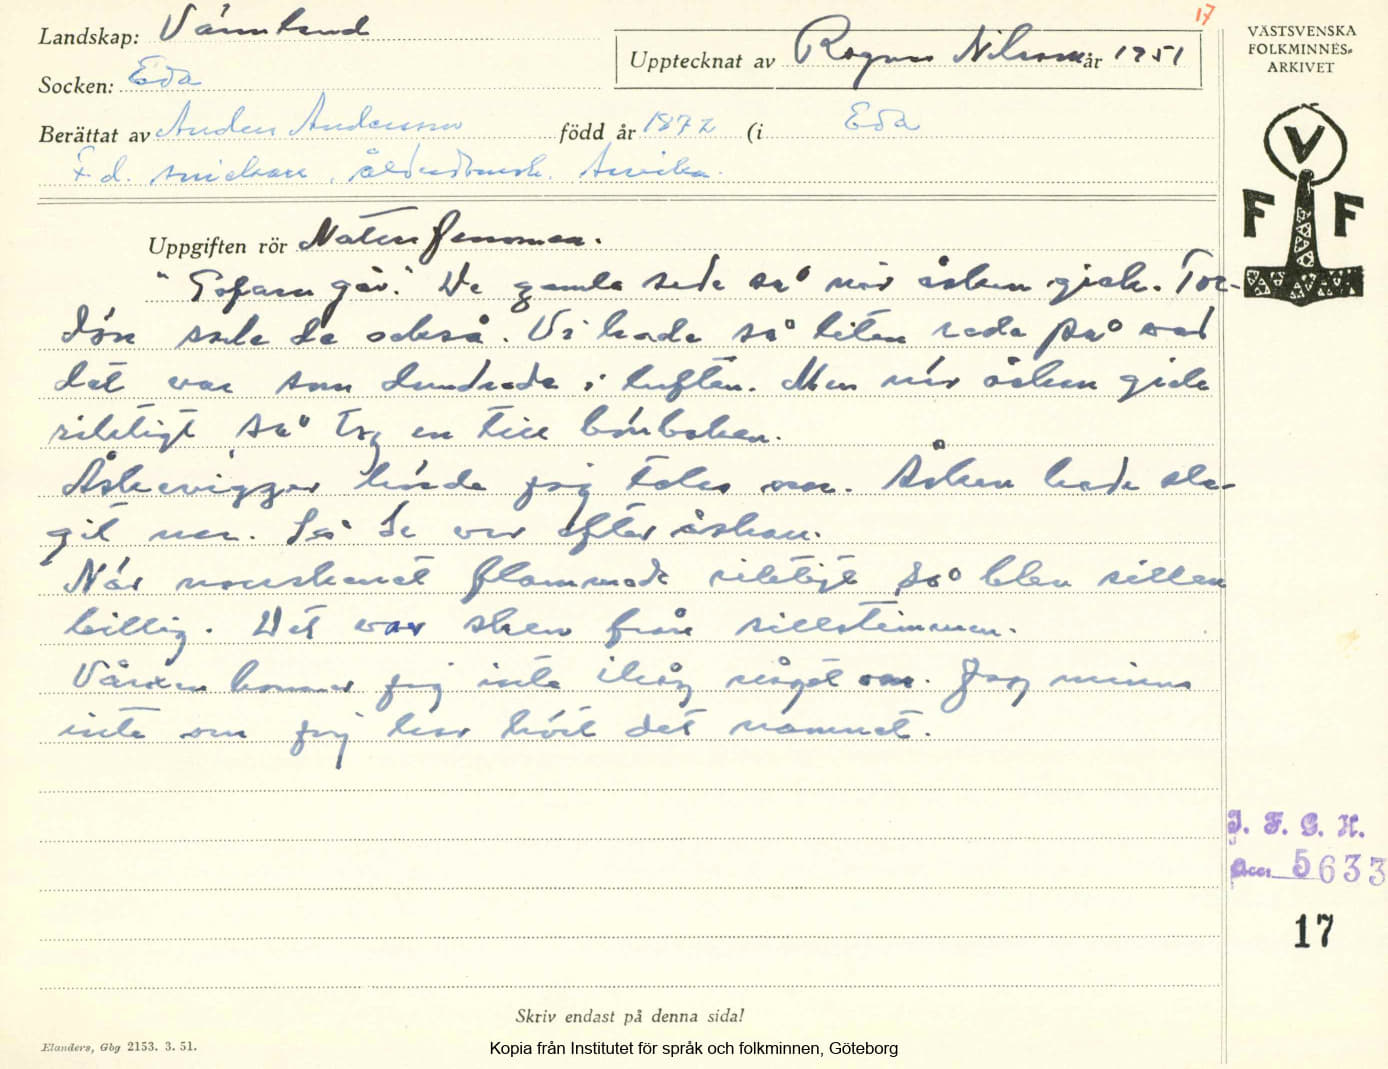 17
Landskap: Värmland
Upptecknat av Ragnar Nilsson år 1951
VÄSTSVENSKA
FOLKMINNES-
ARKIVET
Socken: Eda
Berättat av Anders Andersson född år 1872 (i Eda
F.d. snickare, ålderdomsh. Arvika.
V
F F
Uppgiften rör Naturfenomen.
"Gofarn går". De gamla sade så när åskan gick. Tor-
dön sade de också. Vi hade så liten reda på vad
det var som dundrade i luften. Men när åskan gick
riktigt så tog en till bönboken.
Åskeviggar hörde jag talas om. Åskan hade sla-
git ner. Så de var efter åskan.
När norrskenet flammade riktigt så blev sillen
billig. Det var sken från sillstimmen.
Vårxen kommer jag inte ihåg något om. Jag minns
inte om jag har hört det namnet.
I. F. G. H.
Acc. 5633
17
Skriv endast på denna sida!
Elanders, Gbg 2153. 3. 51.
Kopia från Institutet för språk och folkminnen, Göteborg